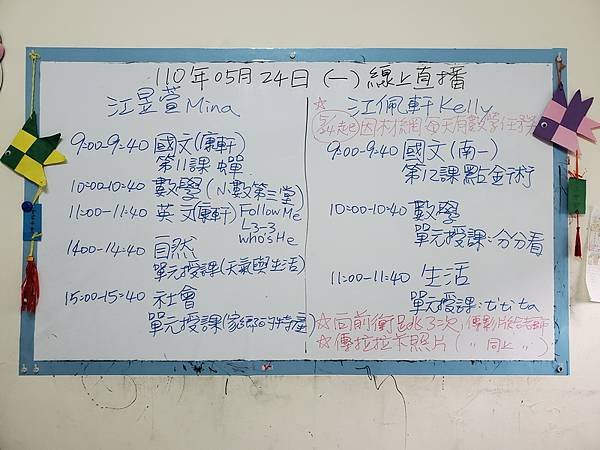 110年05月24日 (一) 線上直播
江昱萱 Mina
9:00-9:40 國文(康軒)
第11課 蟬
10:00-10:40 數學 (N數第三堂)
11:00-11:40 英文(康軒) Follow Me
L3-3
who's He
14:00-14:40 自然
單元授課(天氣與生活)
15:00-15:40 社會
單元授課(家鄉的特產)
☆ 江佩軒 Kelly
5/24起因材網每天有數學任務
9:00-9:40 國文(南一)
第12課 點金術
10:00-10:40 數學
單元授課:分分看
11:00-11:40 生活
單元授課: titita
☆向前衝跑3次, 傳影片給老師
☆傳拉拉卡照片 (〃 同上 〃)